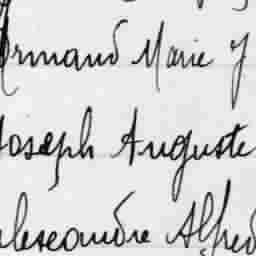 Armand Marie J
Joseph Auguste
Alexandre Alfred